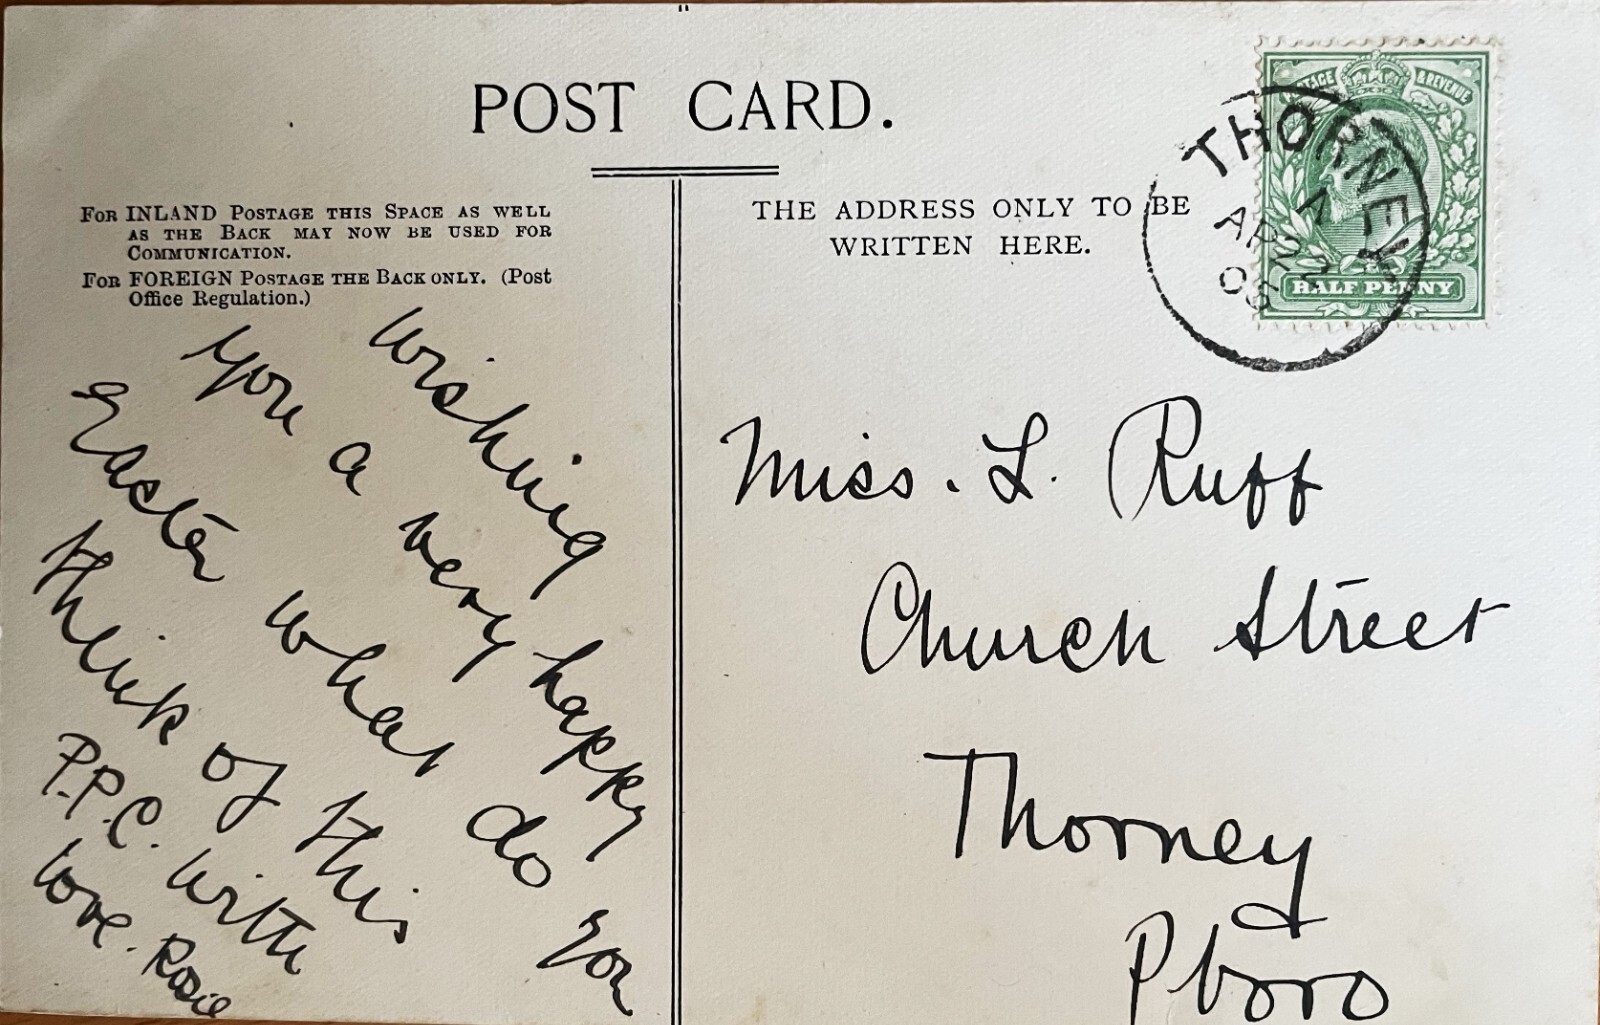 POST CARD.
FOR INLAND POSTAGE THIS SPACE AS WELL
AS THE BACK MAY NOW BE USED FOR
COMMUNICATION.
FOR FOREIGN POSTAGE THE BACK ONLY. (Post
Office Regulation.)
Wishing
you a very happy
Easter what do you
think of this
P.P.C. With
love. Rosie
THE ADDRESS ONLY TO BE
WRITTEN HERE.
POSTAGE & REVENUE
HALF PENNY
THORNEY
A
AP 22
05
Miss. L. Ruff
Church Street
Thorney
Pboro